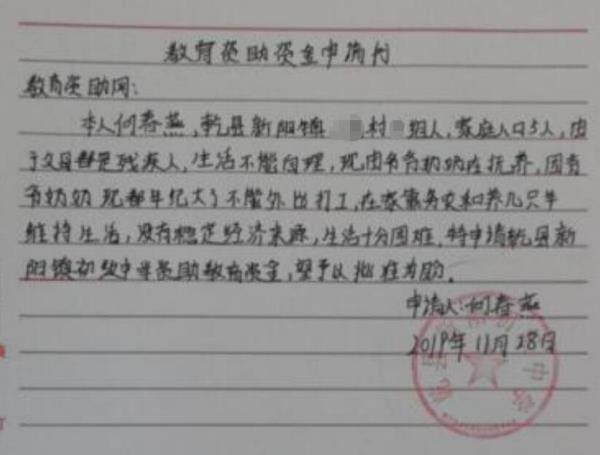 教育资助资金申请书
教育资助网:
本人何春燕,乾县新阳镇 村 组人,家庭人口5人,由
于父母都是残疾人,生活不能自理,现由爷爷奶奶在抚养,因为
爷奶奶现都年纪大了不能外出打工,在家靠务农和养几只羊
维持生活,没有稳定经济来源,生活十分困难,特申请乾县新
阳镇初级中学资助教育资金,望予以批准为盼。
申请人:何春燕
2019年11月28日